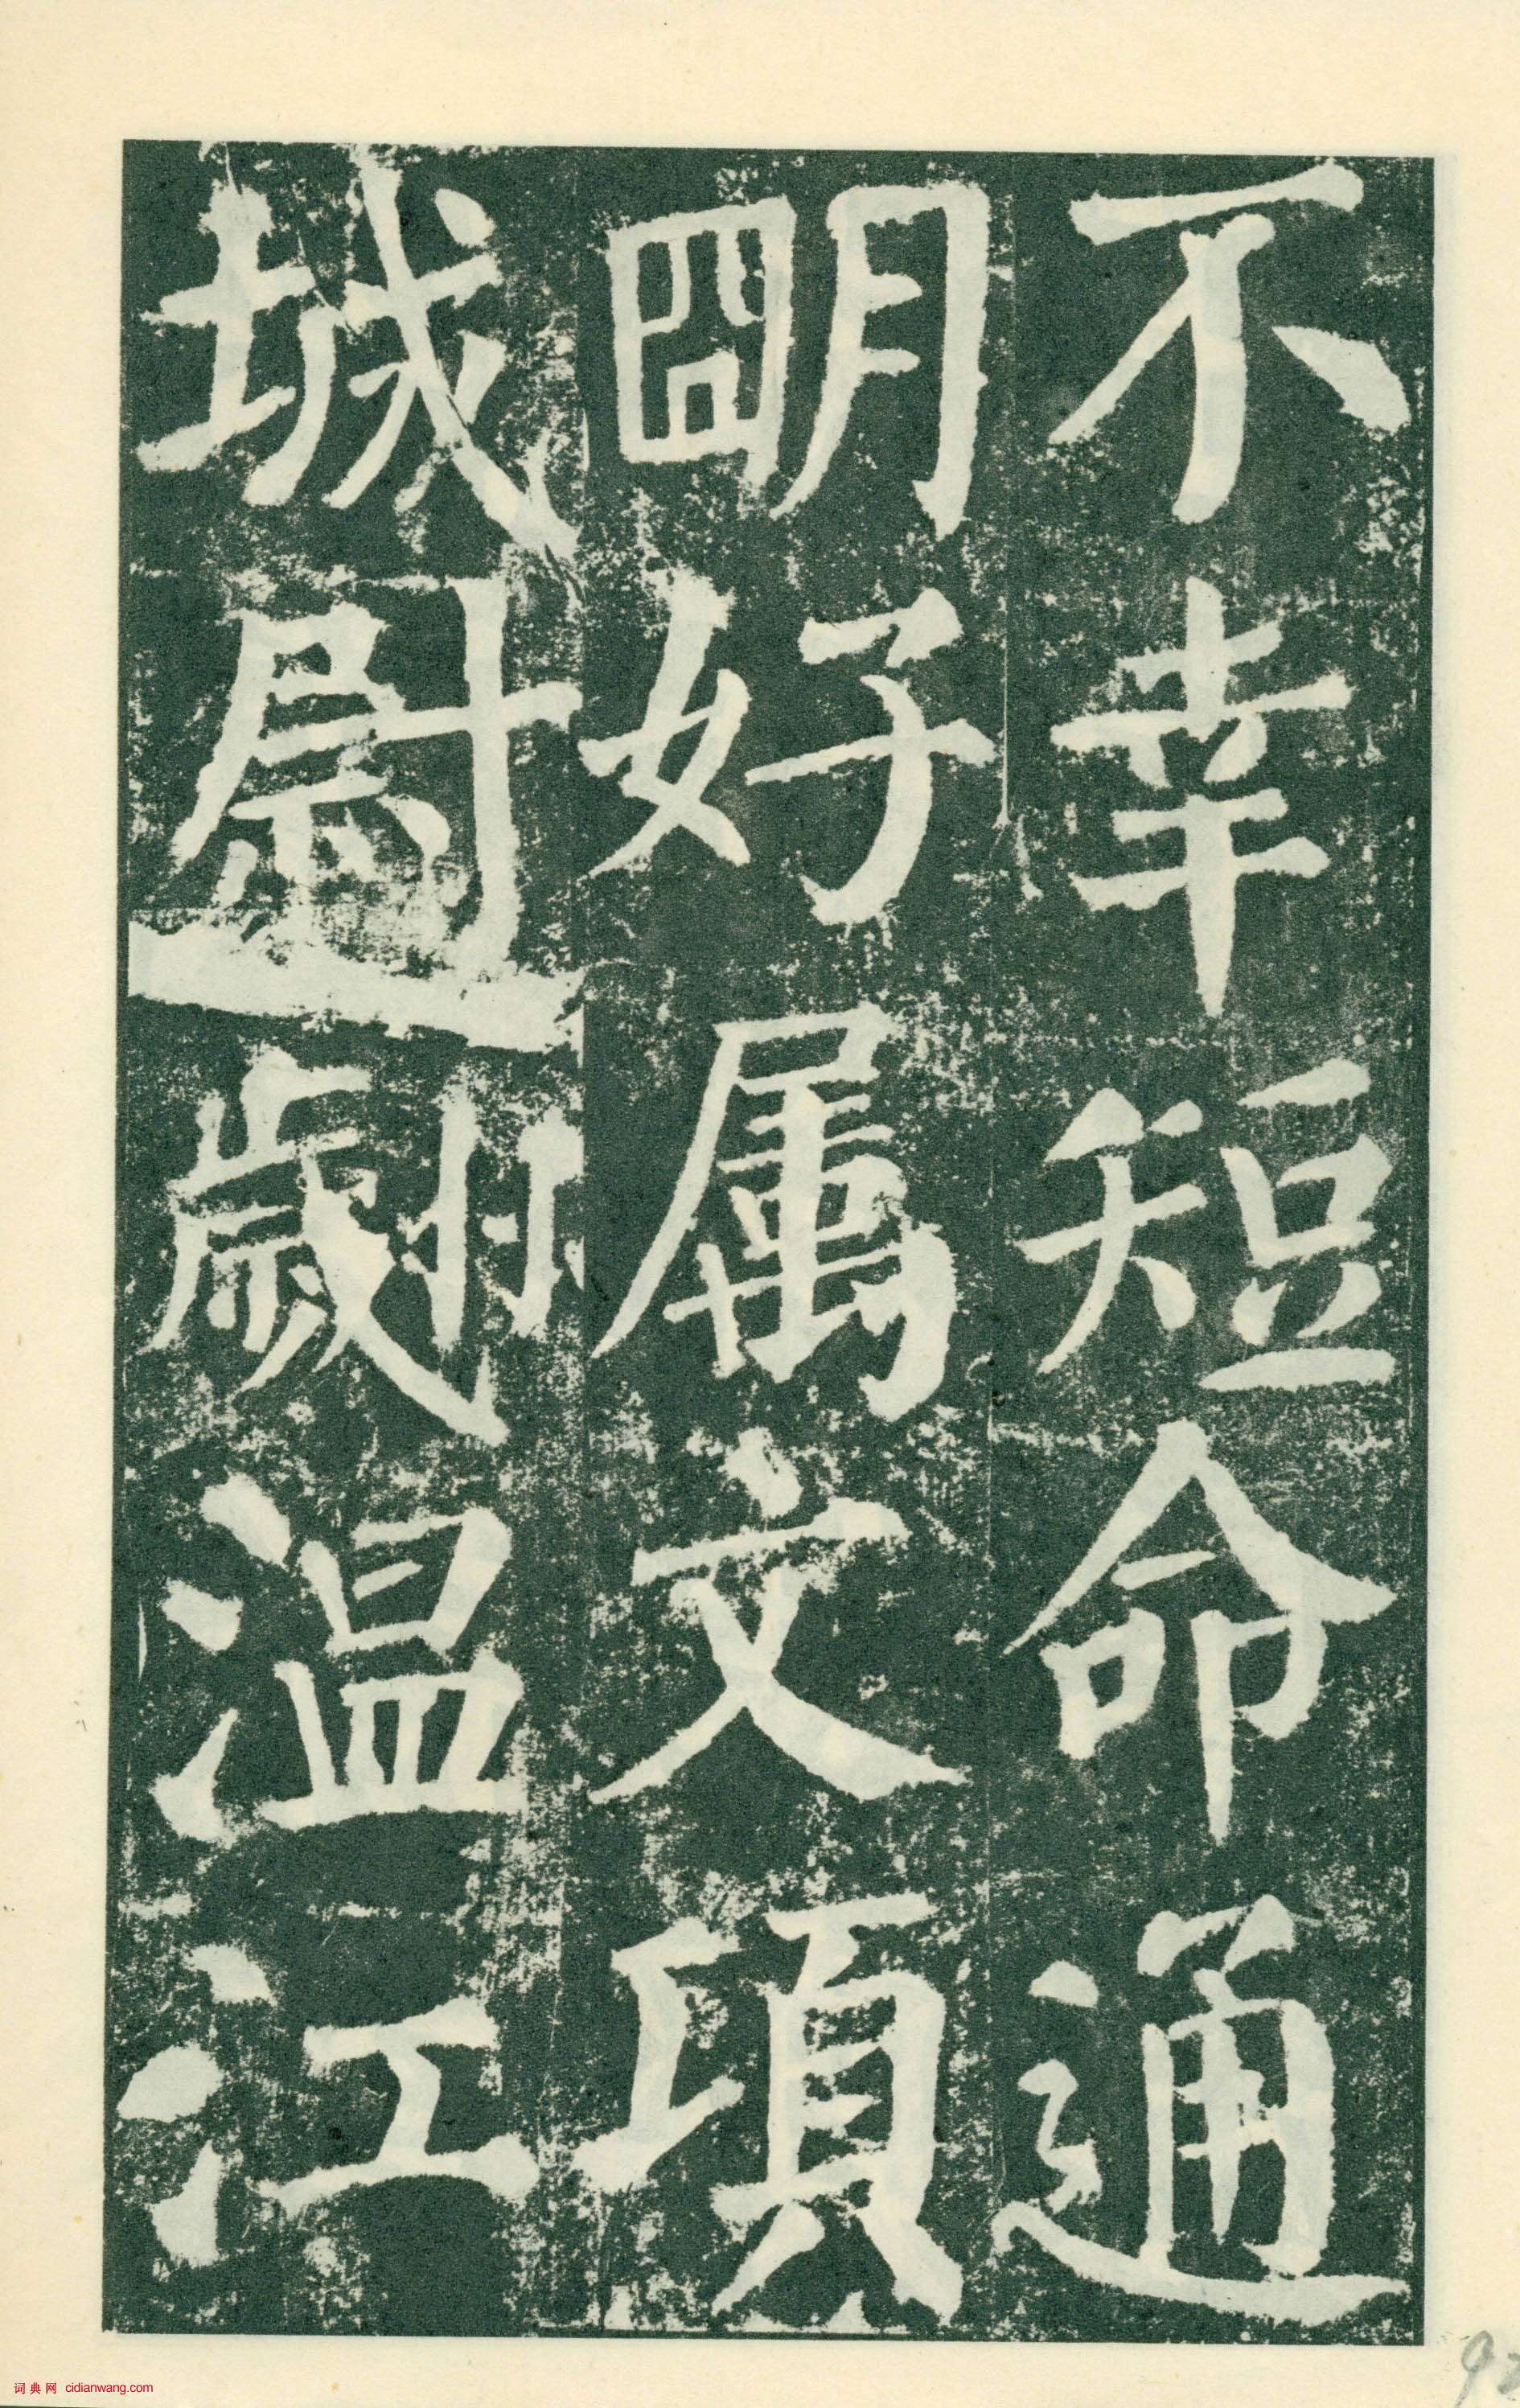 不幸短命通
明好属文項
城尉劌温江
词典网 cidianwang.com
92